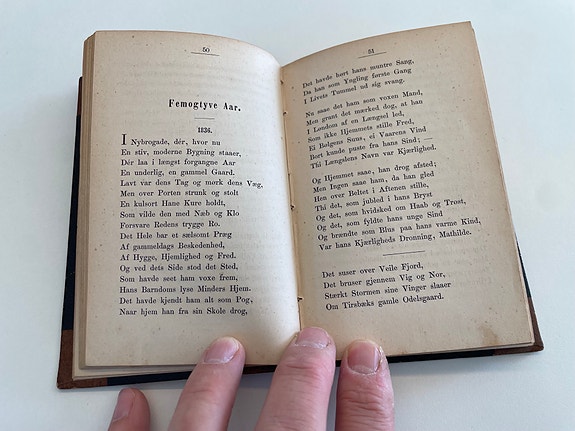 50
Femogtyve Aar.
1836.
I Nybrogade, dér, hvor nu
En stiv, moderne Bygning staaer,
Dér laa i længst forgangne Aar
En underlig, en gammel Gaard.
Lavt var dens Tag og mørk dens Væg,
Men over Porten strunk og stolt
En kulsort Hane Kure holdt,
Som vilde den med Næb og Klo
Forsvare Redens trygge Ro.
Det Hele bar et sælsomt Præg
Af gammeldags Beskedenhed,
Af Hygge, Hjemlighed og Fred.
Og ved dets Side stod det Sted,
Som havde seet ham voxe frem,
Hans Barndoms lyse Minders Hjem.
Det havde kjendt ham alt som Pog,
Naar hjem han fra sin Skole drog,
51
Det havde hørt hans muntre Sang,
Da han som Yngling første Gang
I Livets Tummel ud sig svang.
Nu saae det ham som voxen Mand,
Men grant det mærked dog, at han
I Løndom af en Længsel led,
Som ikke Hjemmets stille Fred,
Ei Bølgens Suus, ei Vaarens Vind
Bort kunde puste fra hans Sind; —
Thi Længslens Navn var Kjærlighed.
Og Hjemmet saae, han drog afsted;
Men Ingen saae ham, da han gled
Hen over Beltet i Aftenen stille,
Thi det, som jubled i hans Bryst
Og det, som hvidsked om Haab og Trøst,
Og det, som fyldte hans unge Sind
Og brændte som Blus paa hans varme Kind,
Var hans Kjærligheds Dronning, Mathilde.
Det suser over Veile Fjord,
Det bruser gjennem Vig og Nor,
Stærkt Stormen sine Vinger slaaer
Om Tirsbæks gamle Odelsgaard.